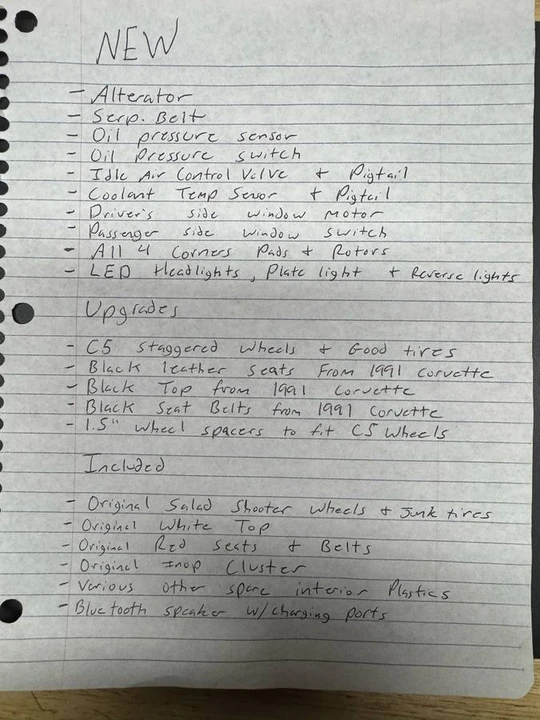 NEW
- Alterator
- Serp. Belt
- Oil pressure sensor
- Oil Pressure switch
- Idle Air Control Valve + Pigtail
- Coolant Temp Sensor + Pigtail
- Driver's side window motor
- Passenger side window switch
- All 4 Corners Pads + Rotors
- LED Headlights, Plate light + Reverse lights
Upgrades
- C5 staggered wheels + Good tires
- Black leather seats from 1991 corvette
- Black Top from 1991 Corvette
- Black Seat Belts from 1991 Corvette
- 1.5" wheel spacers to fit C5 wheels
Included
- Original Salad Shooter wheels + Junk tires
- Original White Top
- Original Red Seats + Belts
- Original Inop Cluster
- Various other spare interior Plastics
- Bluetooth speaker w/charging ports